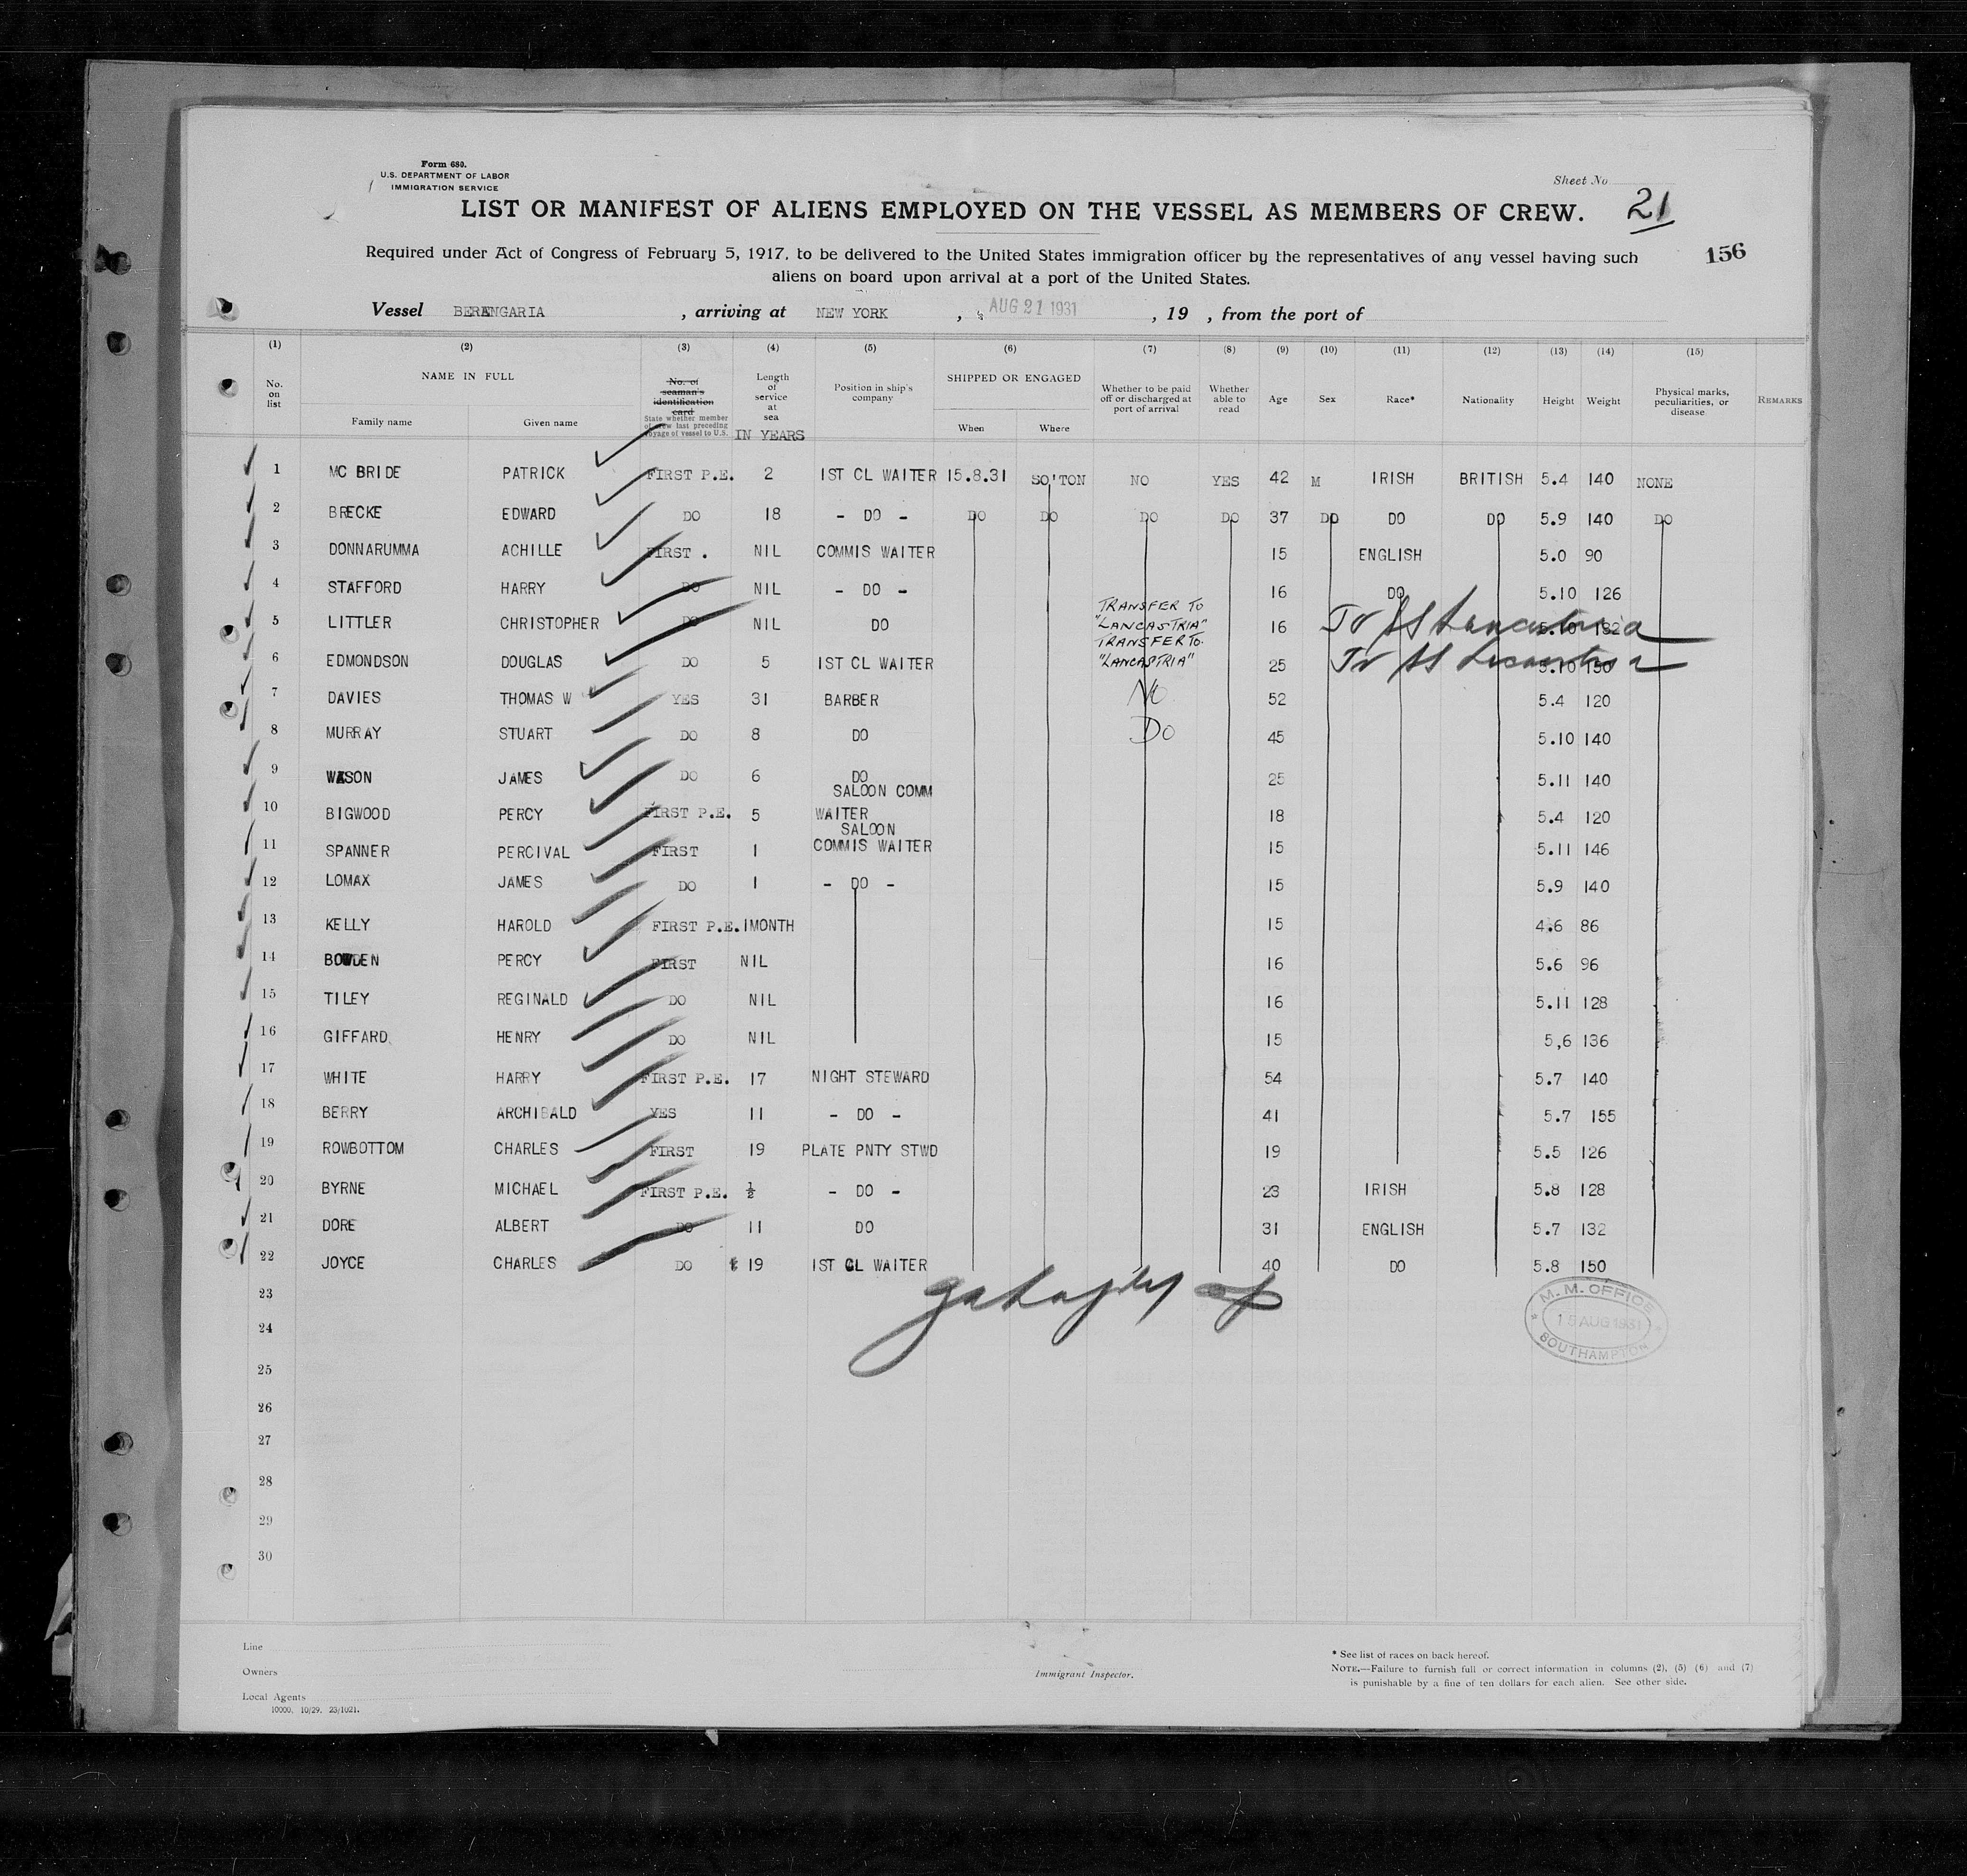 Form 680.
U.S. DEPARTMENT OF LABOR
IMMIGRATION SERVICE
Sheet No
LIST OR MANIFEST OF ALIENS EMPLOYED ON THE VESSEL AS MEMBERS OF CREW. 21
Required under Act of Congress of February 5, 1917, to be delivered to the United States immigration officer by the representatives of any vessel having such 156
aliens on board upon arrival at a port of the United States.
Vessel BERENGARIA , arriving at NEW YORK , AUG 21 1931 , 19 , from the port of
(1) (2) (3) (4) (5) (6) (7) (8) (9) (10) (11) (12) (13) (14) (15)
No. on list NAME IN FULL Family name Given name No. of seaman's identification card State whether member of crew last preceding voyage of vessel to U.S. Length of service at sea IN YEARS Position in ship's company SHIPPED OR ENGAGED When Where Whether to be paid off or discharged at port of arrival Whether able to read Age Sex Race* Nationality Height Weight Physical marks, peculiarities, or disease REMARKS
1 MC BRIDE PATRICK FIRST P.E. 2 1ST CL WAITER 15.8.31 SO'TON NO YES 42 M IRISH BRITISH 5.4 140 NONE
2 BRECKE EDWARD DO 18 - DO - DO DO DO DO 37 DO DO DO 5.9 140 DO
3 DONNARUMMA ACHILLE FIRST . NIL COMMIS WAITER 15 ENGLISH 5.0 90
4 STAFFORD HARRY DO NIL - DO - 16 DO 5.10 126
5 LITTLER CHRISTOPHER DO NIL DO TRANSFER TO "LANCASTRIA" 16 Tr SS Lancastria 5.10 132
6 EDMONDSON DOUGLAS DO 5 1ST CL WAITER TRANSFER TO "LANCASTRIA" 25 Tr SS Lancastria 5.10 150
7 DAVIES THOMAS W YES 31 BARBER NO 52 5.4 120
8 MURRAY STUART DO 8 DO DO 45 5.10 140
9 WASON JAMES DO 6 DO 25 5.11 140
10 BIGWOOD PERCY FIRST P.E. 5 SALOON COMM WAITER 18 5.4 120
11 SPANNER PERCIVAL FIRST 1 SALOON COMMIS WAITER 15 5.11 146
12 LOMAX JAMES DO 1 - DO - 15 5.9 140
13 KELLY HAROLD FIRST P.E. 1MONTH 15 4.6 86
14 BOWDEN PERCY FIRST NIL 16 5.6 96
15 TILEY REGINALD DO NIL 16 5.11 128
16 GIFFARD HENRY DO NIL 15 5,6 136
17 WHITE HARRY FIRST P.E. 17 NIGHT STEWARD 54 5.7 140
18 BERRY ARCHIBALD YES 11 - DO - 41 5.7 155
19 ROWBOTTOM CHARLES FIRST 19 PLATE PNTY STWD 19 5.5 126
20 BYRNE MICHAEL FIRST P.E. ½ - DO - 23 IRISH 5.8 128
21 DORE ALBERT DO 11 DO 31 ENGLISH 5.7 132
22 JOYCE CHARLES DO 19 1ST CL WAITER 40 DO 5.8 150
23
24
25
26
27
28
29
30
M. M. OFFICE
15 AUG 1931
SOUTHAMPTON
Line
Owners
Local Agents
10000. 10/29. 23/1021.
Immigrant Inspector.
* See list of races on back hereof.
NOTE.—Failure to furnish full or correct information in columns (2), (5) (6) and (7)
is punishable by a fine of ten dollars for each alien. See other side.